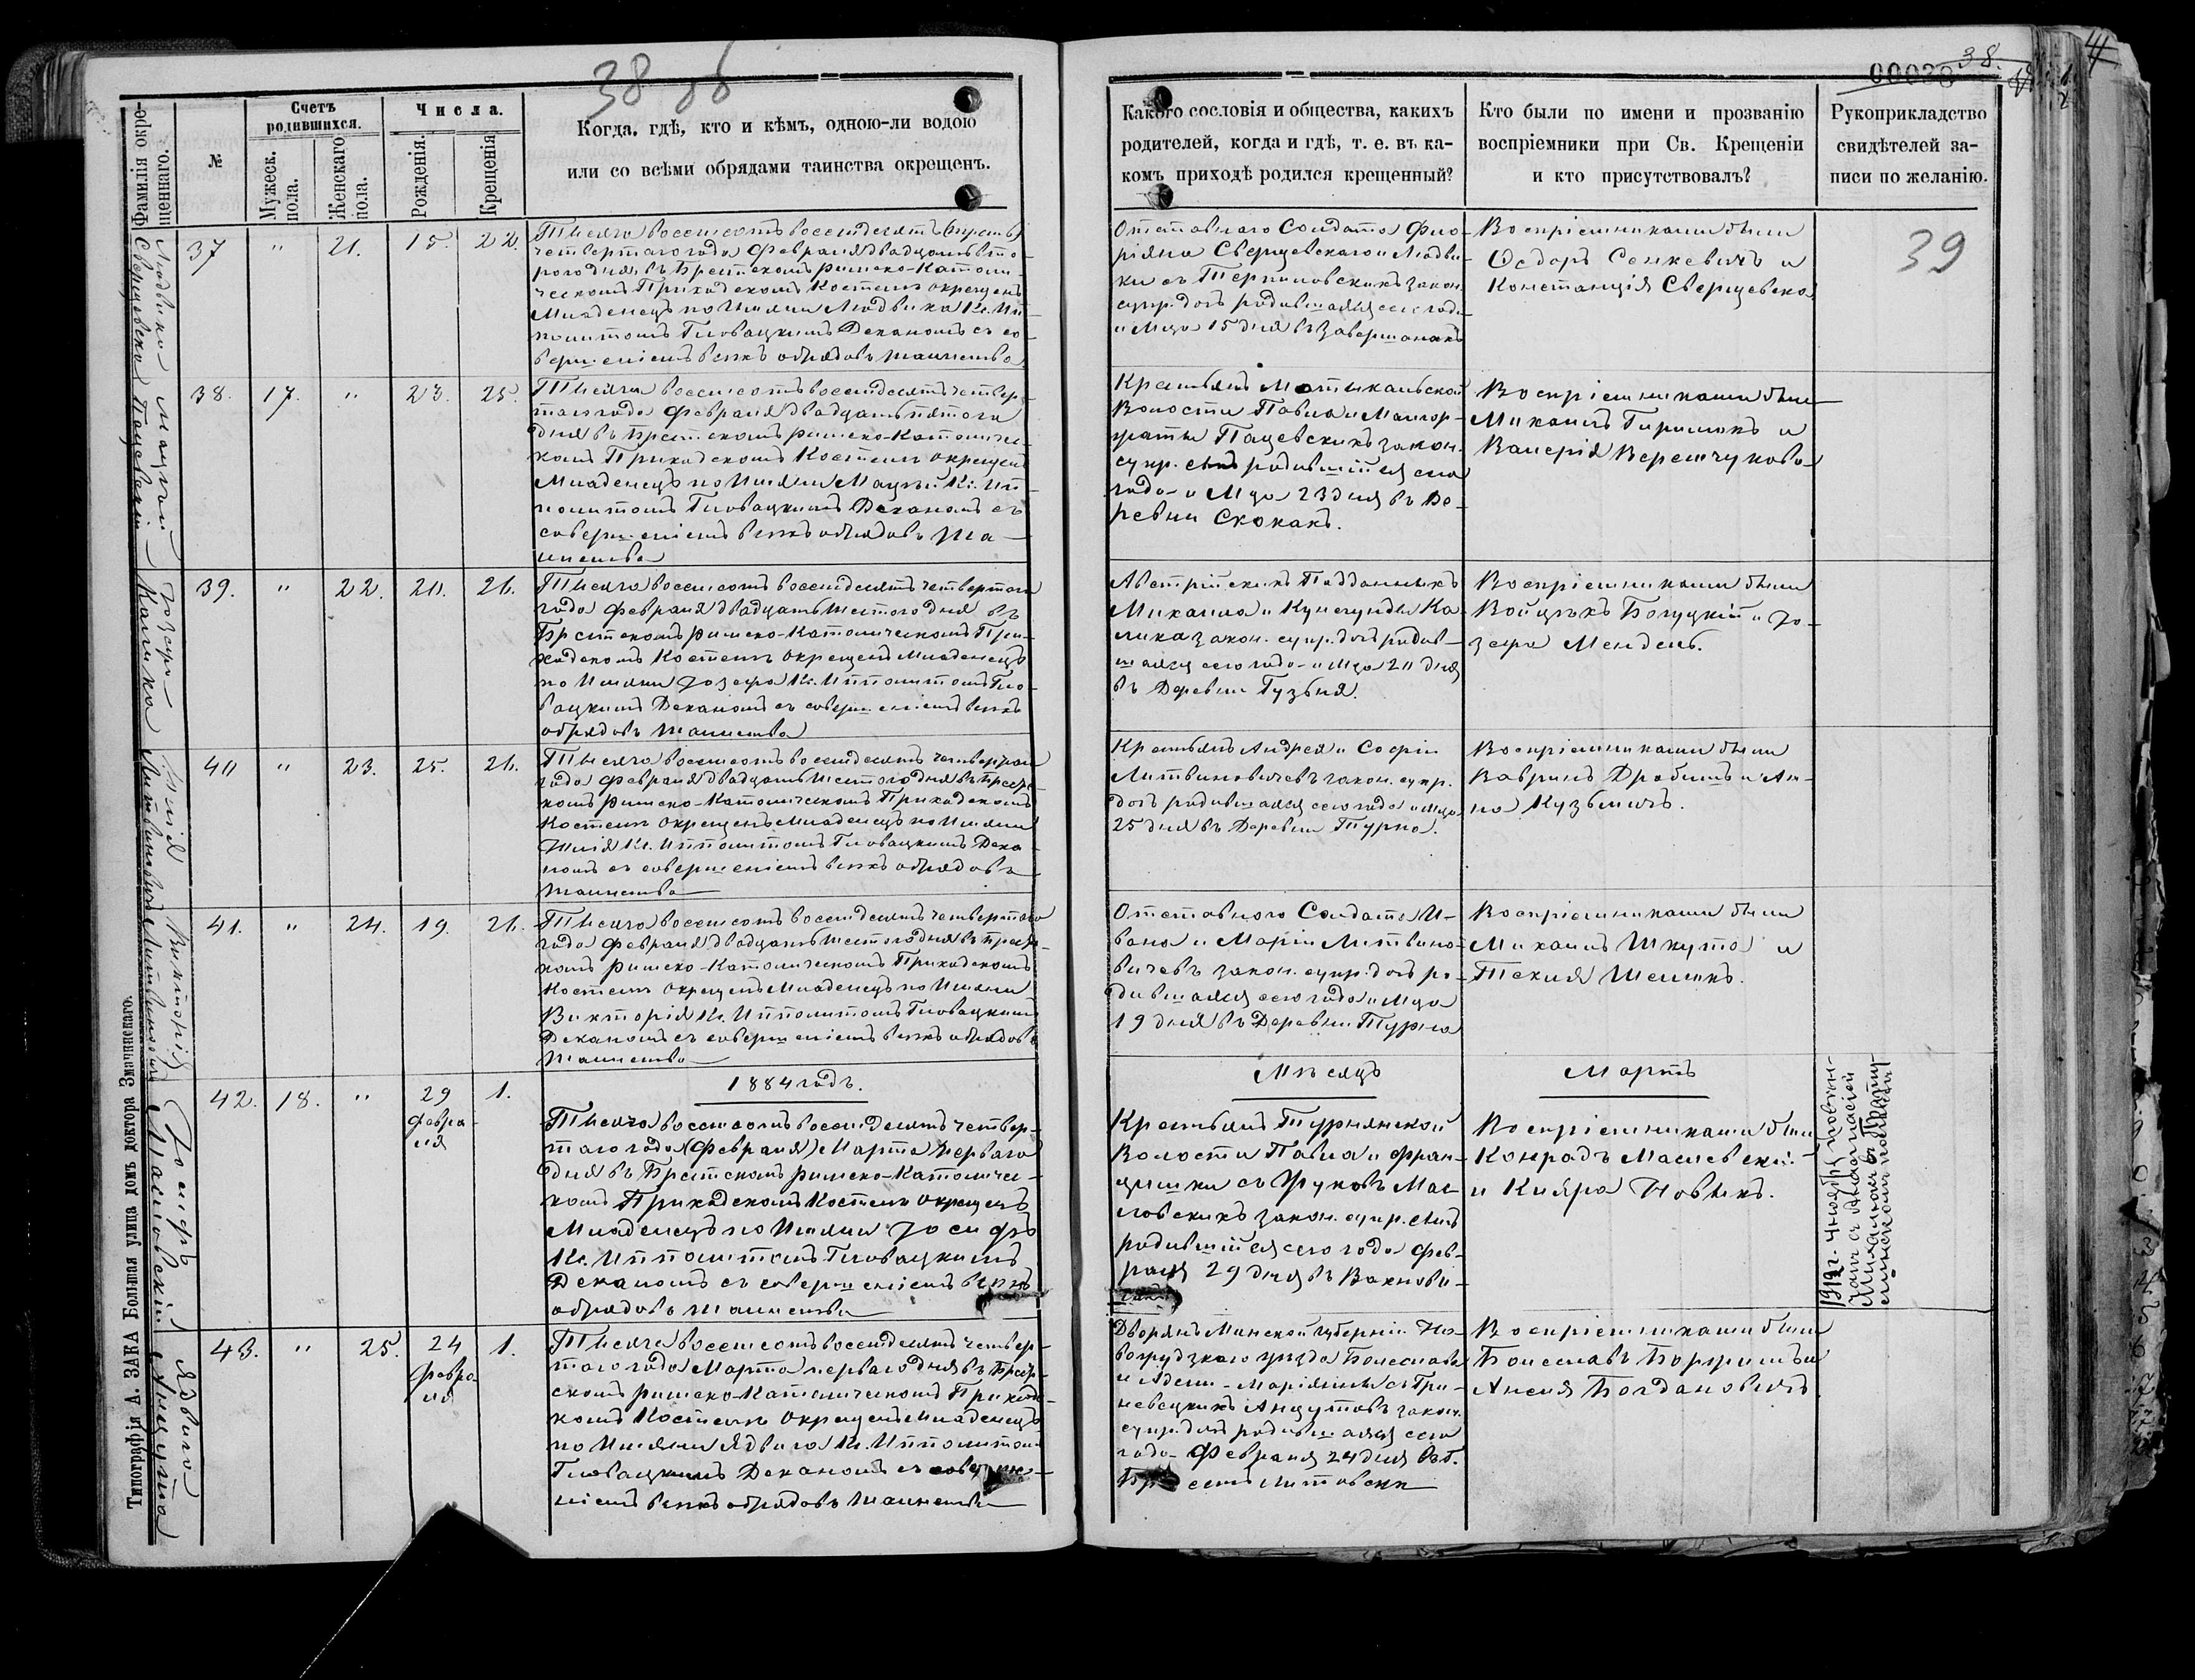 38 об
Фамилія окре-
щеннаго.
№
Счетъ
родившихся.
Мужеск.
пола.
Женскаго
пола.
Числа.
Рожденія.
Крещенія
Когда. гдѣ, кто и кѣмъ, одною-ли водою
или со всѣми обрядами таинства окрещенъ.
Людвика
Сверщевска
37
"
21.
15.
22.
Тысяча восемсотъ восемдесятъ
четвертаго года Февраля двадцать вто-
рого дня въ Брестскомъ римско-Католи-
ческомъ Приходскомъ Костелѣ окрещенъ
Младенецъ по Имяни Людвика Кс. Ип-
политомъ Гловацкимъ Деканомъ съ со-
вершеніемъ всѣхъ обрядовъ таинства
Мацѣй
Пацевскій
38.
17.
"
23.
25.
Тысяча восемсотъ восемдесятъ четвер-
таго года Февраля двадцать пятого
дня въ Брестскомъ римско-Католичес-
комъ Приходскомъ Костелѣ окрещенъ
Младенецъ по Имяни Мацѣй Кс. Ип-
политомъ Гловацкимъ Деканомъ съ
совершеніемъ всѣхъ обрядовъ та-
инства
Юзефа
Калика
39.
"
22.
20.
26.
Тысяча восемсотъ восемдесятъ четвертаго
года Февраля двадцать шестого дня въ
Брестскомъ римско-Католическомъ При-
ходскомъ Костелѣ окрещенъ Младенецъ
по Имяни Юзефа Кс. Ипполитомъ Гло-
вацкимъ Деканомъ съ совершеніемъ всѣхъ
обрядовъ таинства
Литвиновичъ
40
"
23.
25.
26.
Тысяча восемсотъ восемдесятъ четвертаго
года Февраля двадцать шестого дня въ Брест-
комъ римско-Католическомъ Приходскомъ
Костелѣ окрещенъ Младенецъ по Имяни
Кс. Ипполитомъ Гловацкимъ Дека-
номъ съ совершеніемъ всѣхъ обрядовъ
таинства
Викторія
Литвиновичъ
41.
"
24.
19.
26.
Тысяча восемсотъ восемдесятъ четвертаго
года Февраля двадцать шестого дня въ Брест-
комъ римско-Католическомъ Приходскомъ
Костелѣ окрещенъ Младенецъ по Имяни
Викторія Кс. Ипполитомъ Гловацкимъ
Деканомъ съ совершеніемъ всѣхъ обрядовъ
таинства
1884 годъ.
Іосифъ
Масловскій
42.
18.
"
29
Февра-
ля
1.
Тысяча восемсотъ восемдесятъ четвер-
таго года (Февраля) Марта перваго
дня въ Брестскомъ римско-Католичес-
комъ Приходскомъ Костелѣ окрещенъ
Младенецъ по Имяни Іосифъ
Кс. Ипполитомъ Гловацкимъ
Деканомъ съ совершеніемъ всѣхъ
обрядовъ таинства
Ядвига
Анцута
43.
"
25.
24
Февра-
ля
1.
Тысяча восемсотъ восемдесятъ четвер-
таго года Марта перваго дня въ Брест-
скомъ римско-Католическомъ Приходс-
комъ Костелѣ окрещенъ Младенецъ
по Имяни Ядвига Кс. Ипполитомъ
Гловацкимъ Деканомъ съ соверше-
ніемъ всѣхъ обрядовъ таинства
Типографія А. ЗАКА Большая улица домъ доктора Значинскаго.
00038
38.
Какого сословія и общества, какихъ
родителей, когда и гдѣ, т. е. въ ка-
комъ приходѣ родился крещенный?
Кто были по имени и прозванію
воспріемники при Св. Крещеніи
и кто присутствовалъ?
Рукоприкладство
свидѣтелей за-
писи по желанію.
39
Отставнаго Солдата Фло-
ріяна Сверщевскаго и Людви-
ки съ закон.
супр. дочь родившаяся сего года
и Мца 15 дня въ
Воспріемниками были
Ѳедоръ Сенкевичъ и
Констанція Сверщевска
Крестьянъ Мотыкальской
Волости Павла и Малгор-
жаты Пацевскихъ закон.
супр. сынъ родившійся сего
года и Мца 23 дня въ Де-
ревни Скокахъ.
Воспріемниками были
Михаилъ и
Валерія Веремчукова
Австрійскихъ Подданныхъ
Михаила и Кунегунды Ка-
лика закон. супр. дочь родив-
шаяся сего года и Мца 20 дня
въ Деревни Гузьня.
Воспріемниками были
Войцѣхъ Богуцкій и Ю-
зефа Мендель.
Крестьянъ Андрея и Софіи
Литвиновичевъ закон. супр.
дочь родившаяся сего года и Мца
25 дня въ Деревни Турна.
Воспріемниками были
Вавринъ и Ан-
на Кузьмичъ.
Отставного Солдата И-
вана и Маріи Литвино-
вичевъ закон. супр. дочь ро-
дившаяся сего года и Мца
19 дня въ Деревни Турна
Воспріемниками были
Михаилъ Шкута и
Текля
Мѣсяцъ
Мартъ
Крестьянъ Турнянской
Волости Павла и Фран-
цишки съ Жуковъ Мас-
ловскихъ закон. супр. сынъ
родившійся сего года Фев-
раля 29 дня въ Вахнови-
чахъ
Воспріемниками были
Конрадъ Масловскій
и Кляра Новыкъ.
Дворянъ Минской губерніи Но-
вогрудзкаго уѣзда Болеслава
и Адели-Маріянны съ Гри-
невецкихъ Анцутовъ закон.
супр. дочь родившаяся сего
года Февраля 24 дня въ Г.
Брестъ Литовски
Воспріемниками были
Болеславъ и
Анеля Богдановичъ